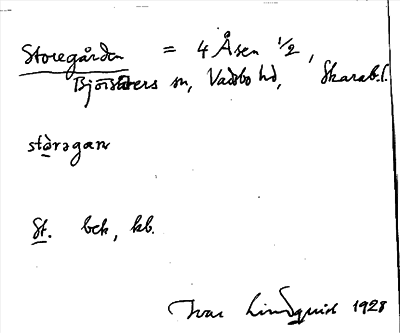 Storegården = 4 Åsen 1/2,
Björsäters sn, Vadsbo hd, Skarab.l.
stòrəgaɳ
St. bek, kb.
Ivar Lindquist 1928